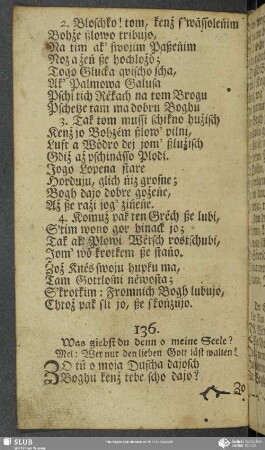 2. Bloschko! tom, kenž s'wässoleñim
Bohže ßlowo tribujo,
Na tim ak' swoiim Paßeñim
Noz a žeñ ße hochlozó;
Togo Glucka qvischo scha,
Ak' Palmowa Galusa
Pschi tich Rěkach na tom Brogu
Pschetze tam ma dobru Boghu
3. Tak tom mussi schikno hužisch
Kenž jo Bohzém ßlow' vilni,
Luft a Wódro dej jom' ßlužisch
Gdiž až pschinásso Plodi.
Jogo Lopena stare
Horduju, glich niz grosne;
Bogh dajo dobre gozene,
Až ße raži jog' ziñene.
4. Komuž pak ten Gréch ße lubi,
S'tim wono gor hinack jo;
Tak ak Plowi Wérsch rosrschubi,
Jom' wó krotkem ße stano.
Zož Knés swoju hupku ma,
Tam Gottlosni néwosta;
S'krotkim: Fromnich Bogh lubujo,
Chtož pak sli jo, ße skonzujo.
136.
Was giebst du denn o meine Seele?
Mel: Wer nur den lieben Gott läst walten!
ZO tú o moja Duscha dajosch
Boghu kenž tebe scho dajo?
Zo
SLUB